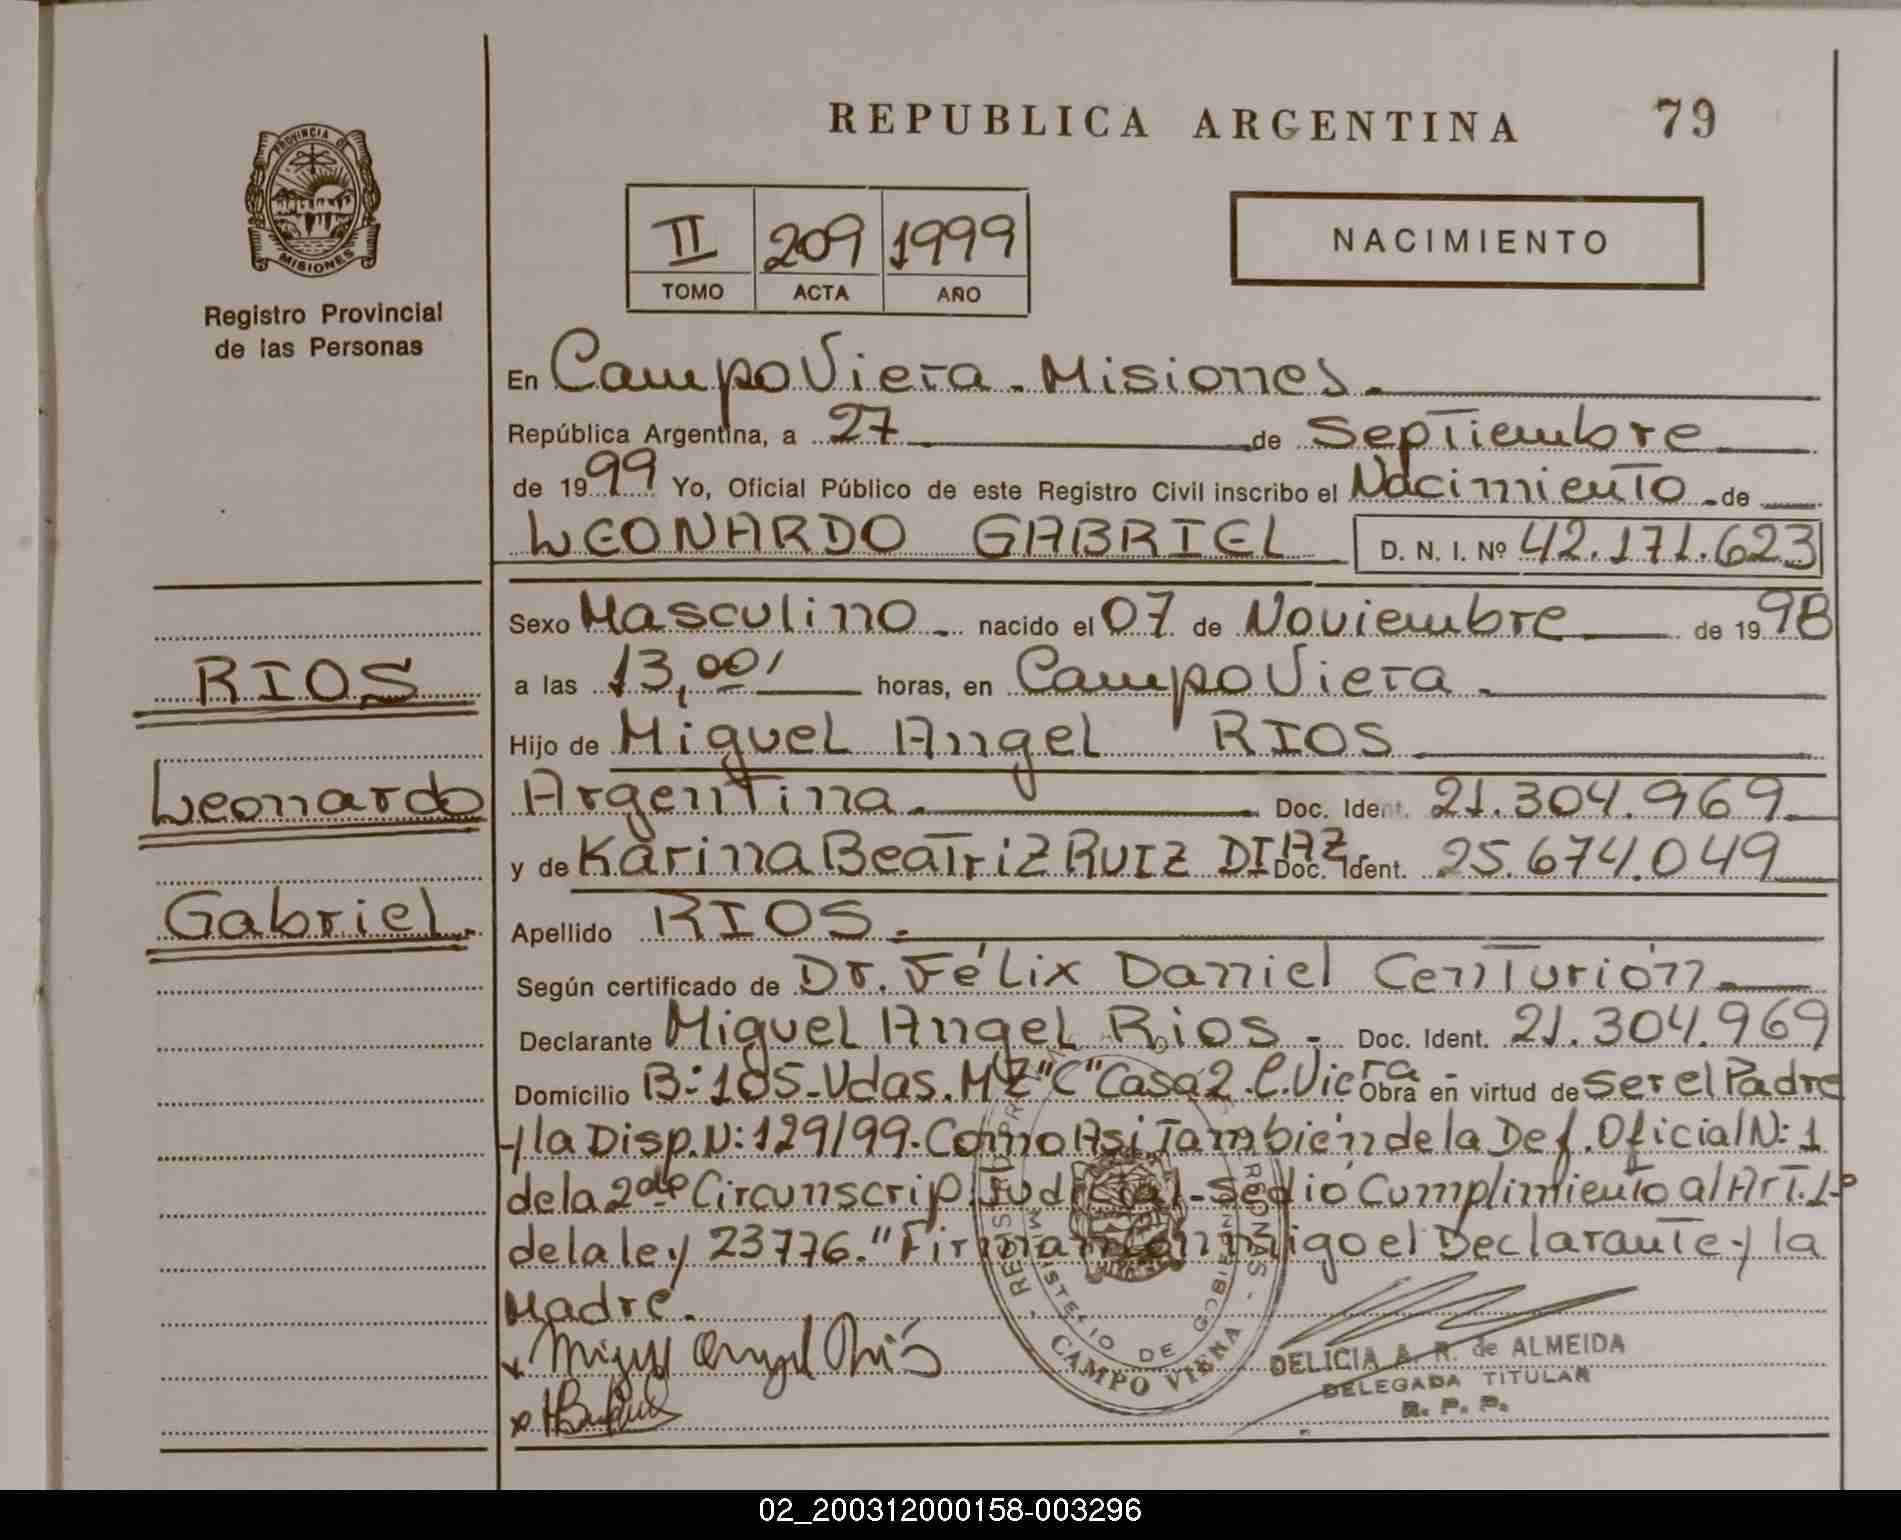 REPUBLICA ARGENTINA 79
PROVINCIA DE
MISIONES
Registro Provincial
de las Personas
II 209 1999
TOMO ACTA AÑO
NACIMIENTO
En Campo Viera - Misiones.
República Argentina, a 27 de Septiembre
de 1999 Yo, Oficial Público de este Registro Civil inscribo el Nacimiento - de
LEONARDO GABRIEL D. N. I. Nº 42.171.623
RIOS
Leonardo
Gabriel.
Sexo Masculino - nacido el 07 de Noviembre de 1998
a las 13,00' horas, en Campo Viera -
Hijo de Miguel Angel RIOS
Argentina. Doc. Ident. 21.304.969
y de Karina Beatriz RUIZ DIAZ - Doc. Ident. 25.674.049
Apellido RIOS.
Según certificado de Dr. Félix Daniel Centurión
Declarante Miguel Angel Rios - Doc. Ident. 21.304.969
Domicilio B: 105 - Vdas. MZ "C" Casa 2. C. Viera - Obra en virtud de ser el Padre
y la Disp. N: 129/99. Como Asi También de la Def. Oficial N: 1
de la 2da Circunscrip. Judicial - se dió Cumplimiento al Art. 1º
de la ley 23776." Firman conmigo el Declarante y la
Madre.
x Miguel Angel Ríos
REGISTRO PROV. PERSONAS
MINISTERIO DE GOBIERNO
CAMPO VIERA
DELICIA A. R. de ALMEIDA
DELEGADA TITULAR
R. P. P.
02_200312000158-003296